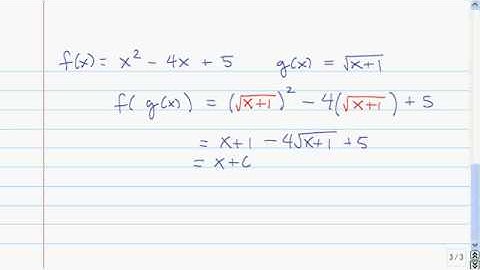 f(x) = x² - 4x + 5 g(x) = √(x+1)
f( g(x) ) = (√(x+1))² - 4(√(x+1)) + 5
= x+1 - 4√(x+1) + 5
= x+6
3 / 3